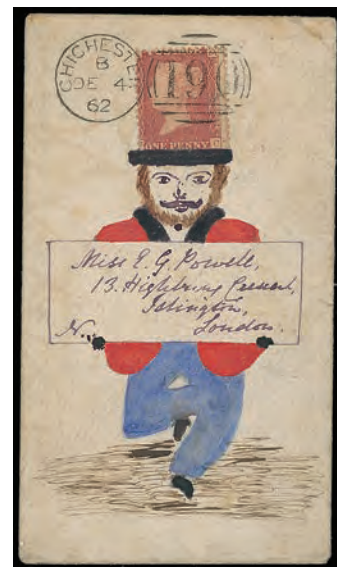 CHICHESTER
B
DE 4
62
190
ONE PENNY
Miss E. G. Powell,
13. Highbury Crescent,
Islington,
N. London.